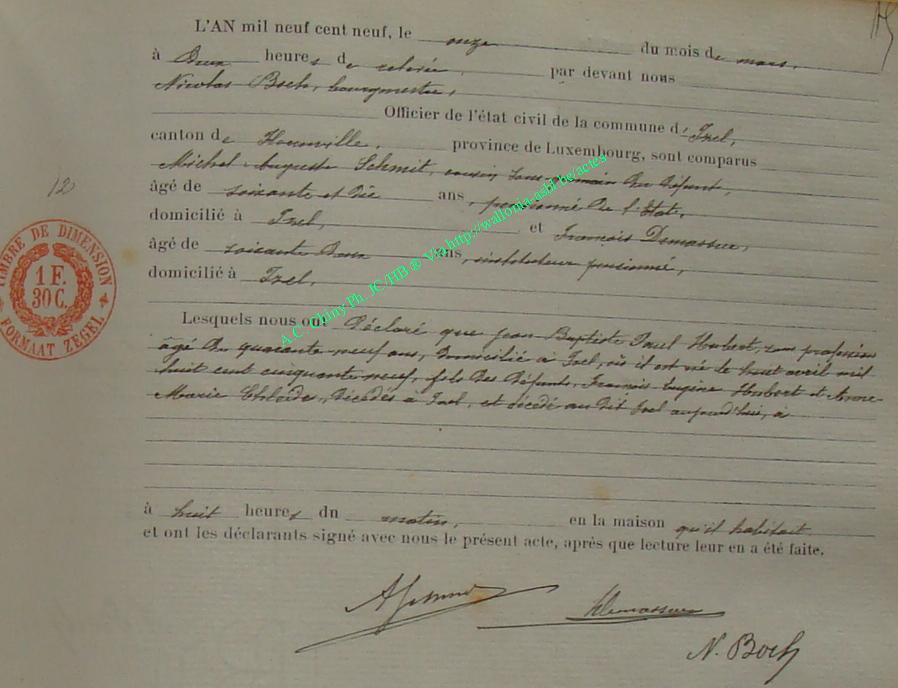 L'AN mil neuf cent neuf, le onze du mois de mars,
à Deux heures de relevée, par devant nous
Nicolas Boch, bourgmestre,
Officier de l'état civil de la commune d' Izel,
canton de Florenville, province de Luxembourg, sont comparus
Michel Auguste Schmit, cousin sous-germain du défunt,
âgé de soixante et dix ans, pensionné de l'Etat,
domicilié à Izel, et François Demasseur,
âgé de soixante Deux ans, instituteur pensionné,
domicilié à Izel,
Lesquels nous ont Déclaré que Jean Baptiste Paul Hubert, sans profession
âgé de quarante neuf ans, domicilié à Izel, où il est né le huit avril mil
huit cent cinquante neuf, fils des défunts, François Eugène Hubert et Anne
Marie, décédés à Izel, est décédé au dit Izel aujourd'hui, à
à huit heures du matin, en la maison qu'il habitait
et ont les déclarants signé avec nous le présent acte, après que lecture leur en a été faite.
N. Boch
12
TIMBRE DE DIMENSION
1 F.
30 C.
FORMAAT ZEGEL
A.C. Chiny Ph. JC/HB ® Via http://wallonia.asbl.be/actes